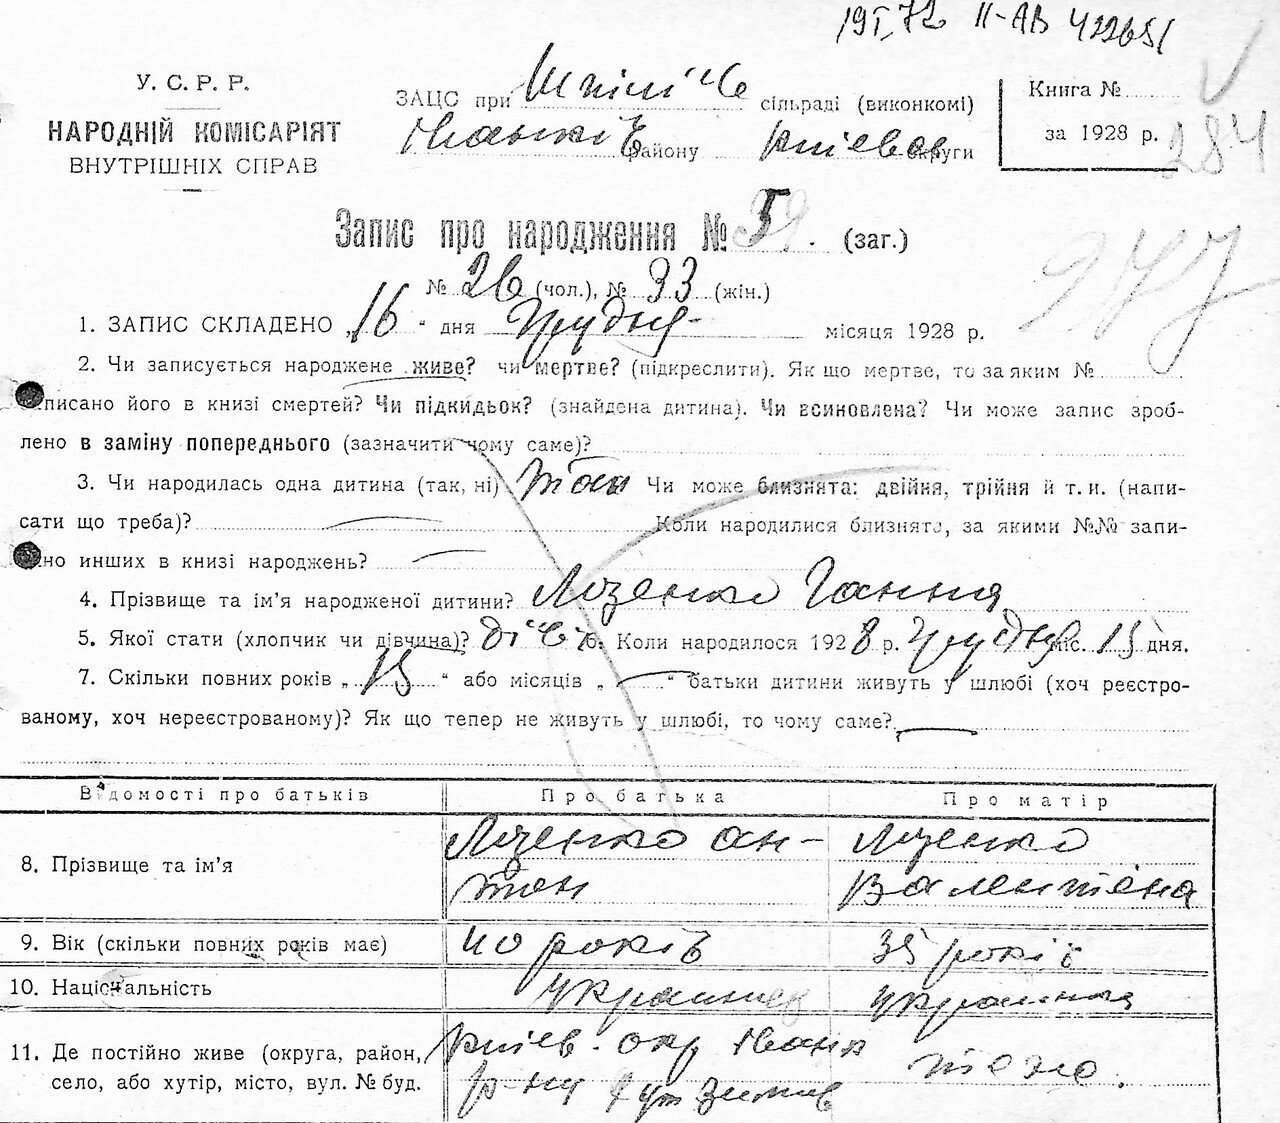 19 I, 72 II-АВ 422651
У. С. Р. Р.
НАРОДНІЙ КОМІСАРІЯТ
ВНУТРІШНІХ СПРАВ
ЗАЦС при сільраді (виконкомі)
Іванків району Київськ округи
Книга №
за 1928 р.
284
277
Запис про народження № 59. (заг.)
№ 26 (чол.), № 33 (жін.)
1. ЗАПИС СКЛАДЕНО „16" дня Грудня місяця 1928 р.
2. Чи записується народжене живе? чи мертве? (підкреслити). Як що мертве, то за яким №
записано його в книзі смертей? Чи підкидьок? (знайдена дитина). Чи всиновлена? Чи може запис зроб-
лено в заміну попереднього (зазначити чому саме)?
3. Чи народилась одна дитина (так, ні) так Чи може близнята: двійня, трійня й т. и. (напи-
сати що треба)? Коли народилися близнята, за якими №№ запи-
но инших в книзі народжень?
4. Прізвище та ім'я народженої дитини? Лозенко Ганна
5. Якої стати (хлопчик чи дівчина)? дівч 6. Коли народилося 1928 р. Грудня міс. 15 дня.
7. Скільки повних років „15" або місяців „—" батьки дитини живуть у шлюбі (хоч реєстро-
ваному, хоч нереєстрованому)? Як що тепер не живуть у шлюбі, то чому саме?
Відомості про батьків Про батька Про матір
8. Прізвище та ім'я Лозенко Ан-тон Лозенко Валентина
9. Вік (скільки повних років має) 40 років 35 років
10. Національність українец українка
11. Де постійно живе (округа, район, Київ. окр Іванк
село, або хутір, місто, вул. № буд. р-ну хут теж.